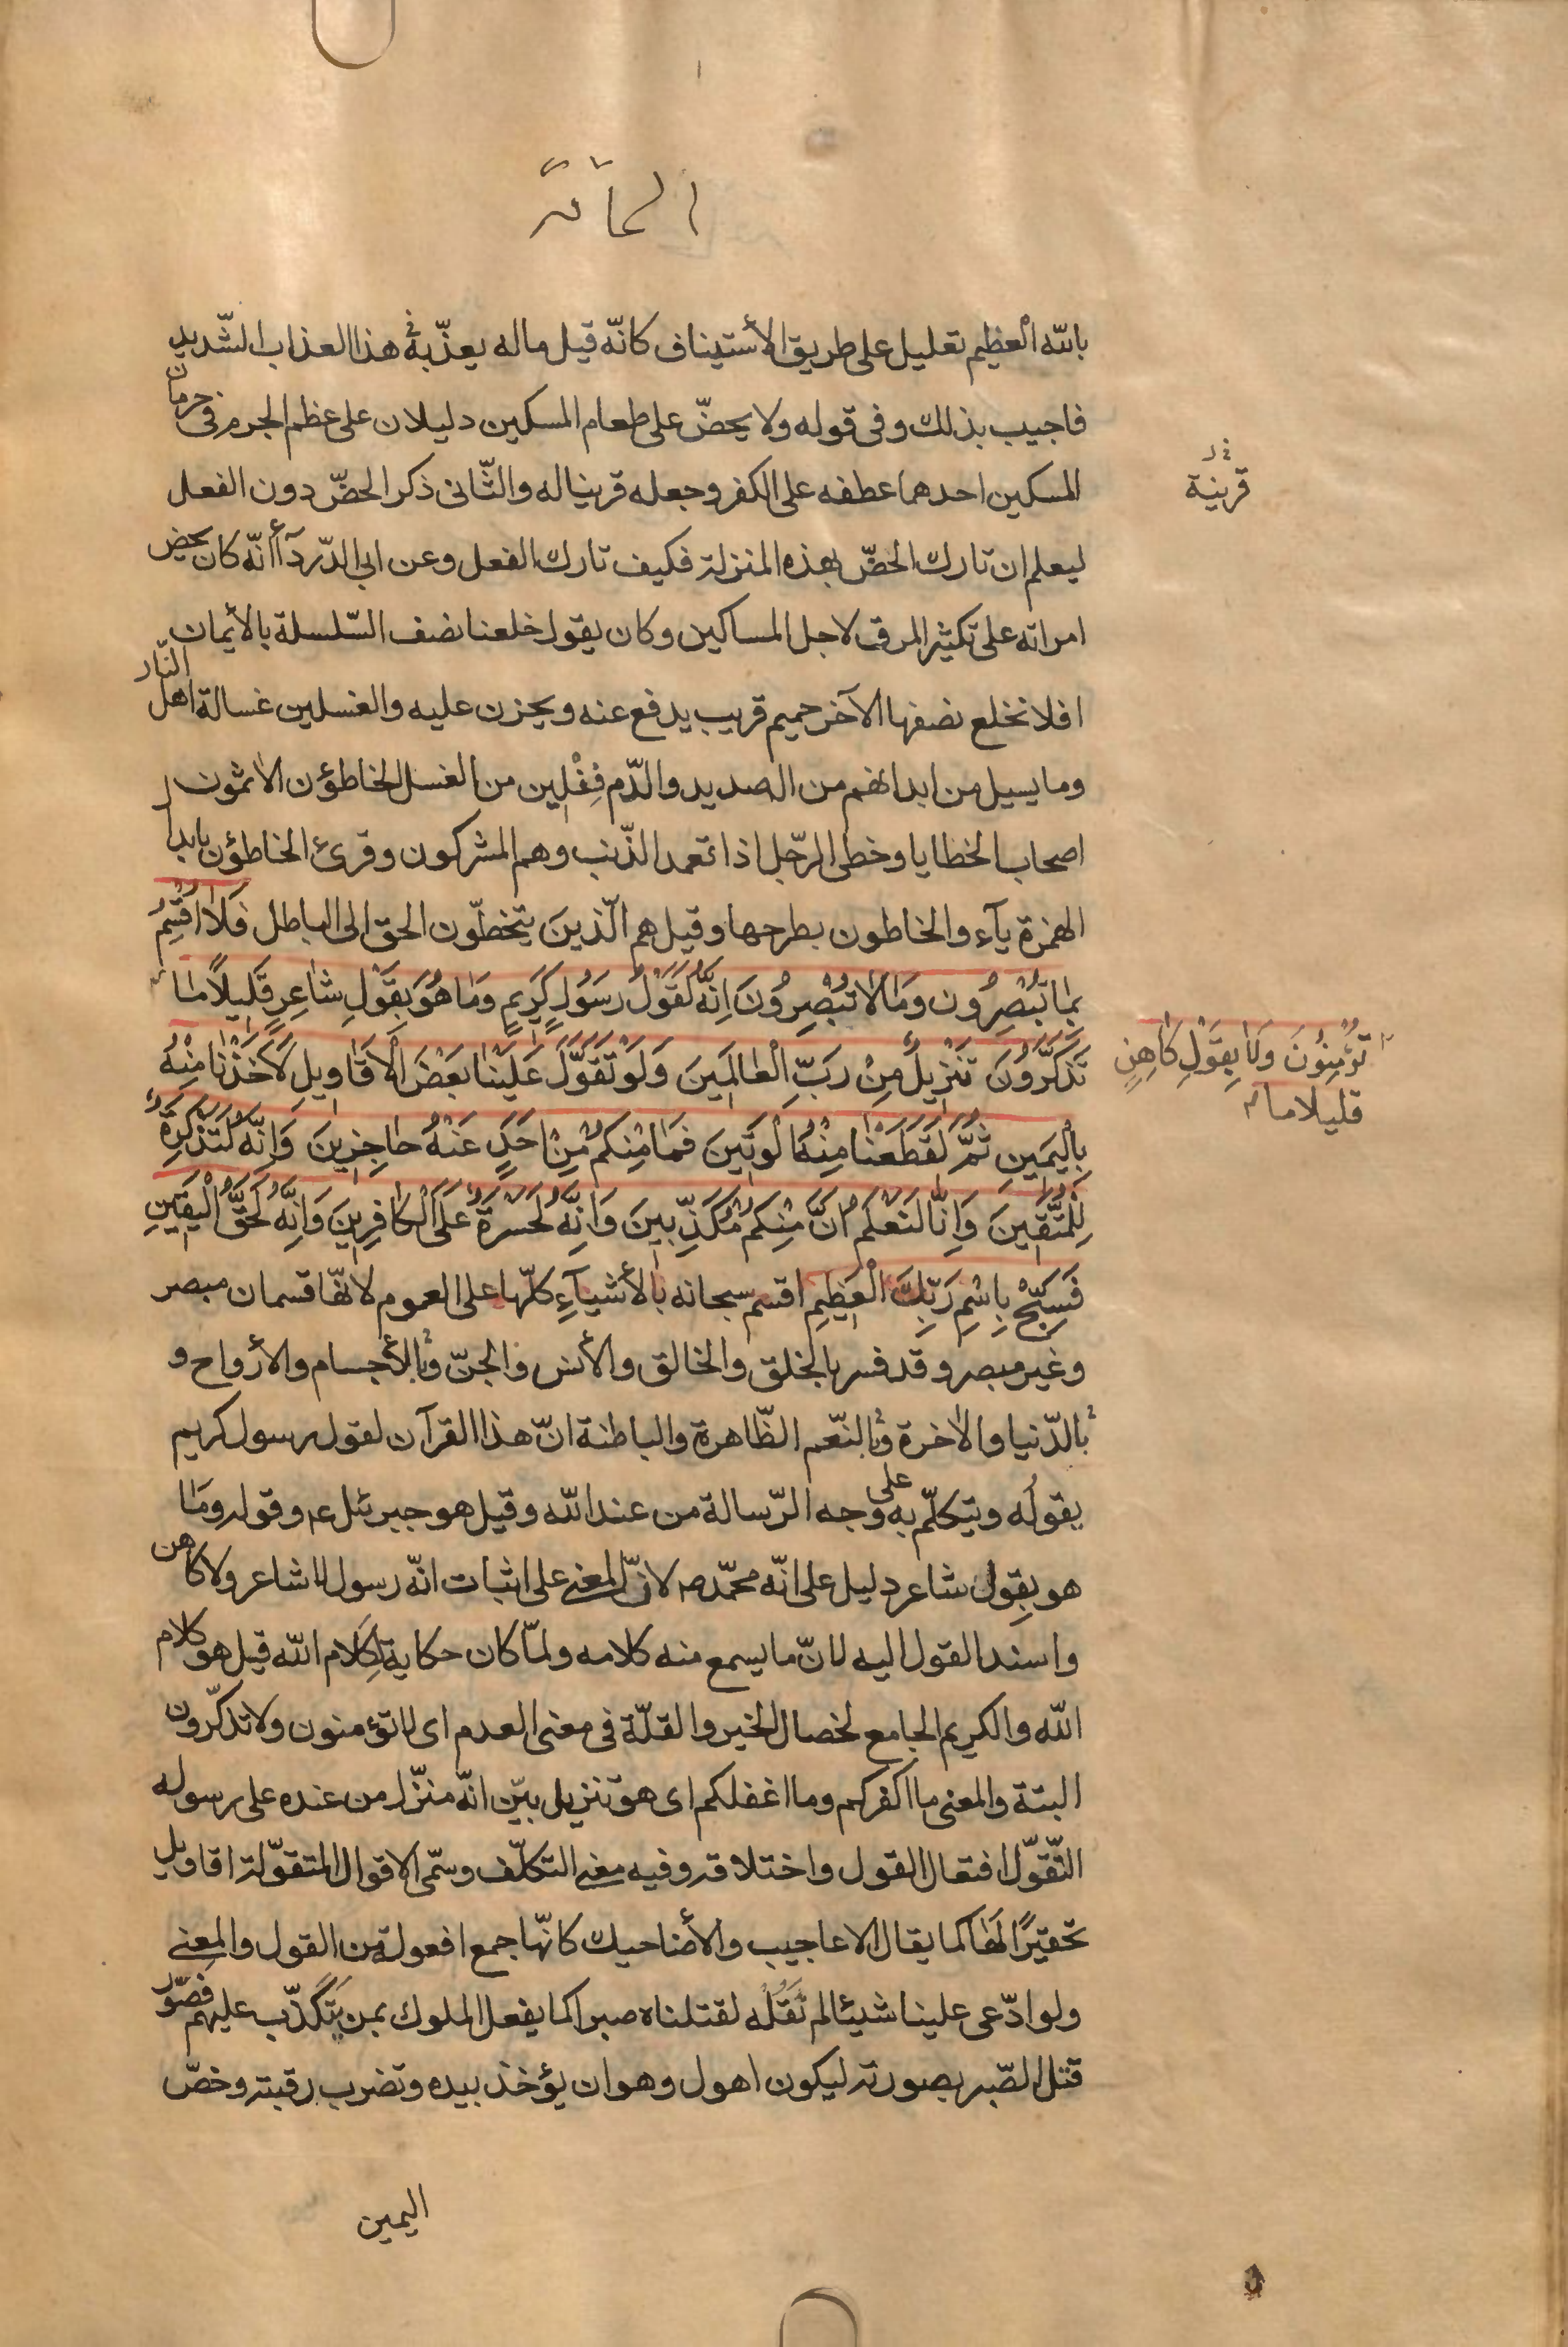 الحاقة
بالله العظيم تعليل على طريق الأستيناف كانّه قيل ماله يعذّب هذا العذاب الشّديد
فاجيب بذلك وفى قوله ولا يحضّ على طعام المسكين دليلان على عظم الجرم فى حرمان
المسكين احدهما عطفه على الكفر وجعله قرينا له والثّانى ذكر الحضّ دون الفعل
قرينة
ليعلم ان تارك الحضّ بهذه المنزلة فكيف تارك الفعل وعن ابى الدّردآء أنّه كان يحض
امراته على تكثير المرق لاجل المساكين وكان يقول خلعنا نصف السّلسلة بالأيمان
افلا نخلع نصفها الآخر حميم قريب يدفع عنه ويحزن عليه والغسلين غسالة اهل النّار
وما يسيل من ابدانهم من الصديد والدّم فِعْلِين من الغسل الخاطؤن الاثمون
اصحاب الخطايا وخطئ الرّجل اذا تعمد الذّنب وهم المشركون وقرئ الخاطؤن بابدال
الهمزة يآء والخاطون بطرحها وقيل هم الّذين يتخطّون الحق الى الباطل فَلَا اُقْسِمُ
بِمَا تُبْصِرُون وَمَا لَا تُبْصِرُونَ اِنَّهُ لَقَوْلُ رَسُولٍ كَرِيمٍ وَمَا هُوَ بِقَوْلِ شَاعِرٍ قَلِيلًا مَا
تُؤْمِنُونَ وَلَا بِقَوْلِ كَاهِنٍ
قليلا ما
تَذَكَّرُونَ تَنْزِيلٌ مِنْ رَبِّ الْعَالَمِينَ وَلَوْ تَقَوَّلَ عَلَيْنَا بَعْضَ الْاَقَاوِيلِ لَاَخَذْنَا مِنْهُ
بِالْيَمِينِ ثُمَّ لَقَطَعْنَا مِنْهُ الْوَتِينَ فَمَا مِنْكُمْ مِنْ اَحَدٍ عَنْهُ حَاجِزِينَ وَاِنَّهُ لَتَذْكِرَةٌ
لِلْمُتَّقِينَ وَاِنَّا لَنَعْلَمُ اَنَّ مِنْكُمْ مُكَذِّبِينَ وَاِنَّهُ لَحَسْرَةٌ عَلَى الْكَافِرِينَ وَاِنَّهُ لَحَقُّ الْيَقِينِ
فَسَبِّحْ بِاسْمِ رَبِّكَ الْعَظِيمِ اقسم سبحانه بالأشيآءِ كلّها على العموم لانّها قسمان مبصر
وغير مبصر وقد فسر بالخلق والخالق والأنس والجنّ وبالأجسام والأرواح و
بالدّنيا والاخرة وبالنّعم الظّاهرة والباطنة انّ هذا القرآن لقول رسول كريم
يقولُه ويتكلّم به على وجه الرّسالة من عند الله وقيل هو جبرئل ع وقوله وما
هو بقول شاعر دليل على انّه محمّد ص لانّ المعنى على اثبات انّه رسول لا شاعر ولا كاهن
واسند القول اليه لانّ ما يسمع منه كلامه ولمّا كان حكاية لكلام الله قيل هو كلام
الله والكريم الجامع لخصال الخير والقلّة فى معنى العدم اى لا تؤمنون ولا تذكّرون
البتة والمعنى ما اكفركم وما اغفلكم اى هو تنزيل بيّن انّه منزّل من عنده على رسوله
التّقوّل افتعال القول واختلاقه وفيه معنى التكلّف وسمّى الاقوال المتقوّلة اقاويل
تحقيرًا لها كما يقال الاعاجيب والأضاحيك كانّها جمع افعولة من القول والمعنى
ولو ادّعى علينا شيئا لم نقله لقتلناه صبرا كما يفعل الملوك بمن يتكذّب عليهم فصوّر
قتل الصّبر بصورته ليكون اهول وهو ان يؤخذ بيده وتضرب رقبته وخصّ
اليمين